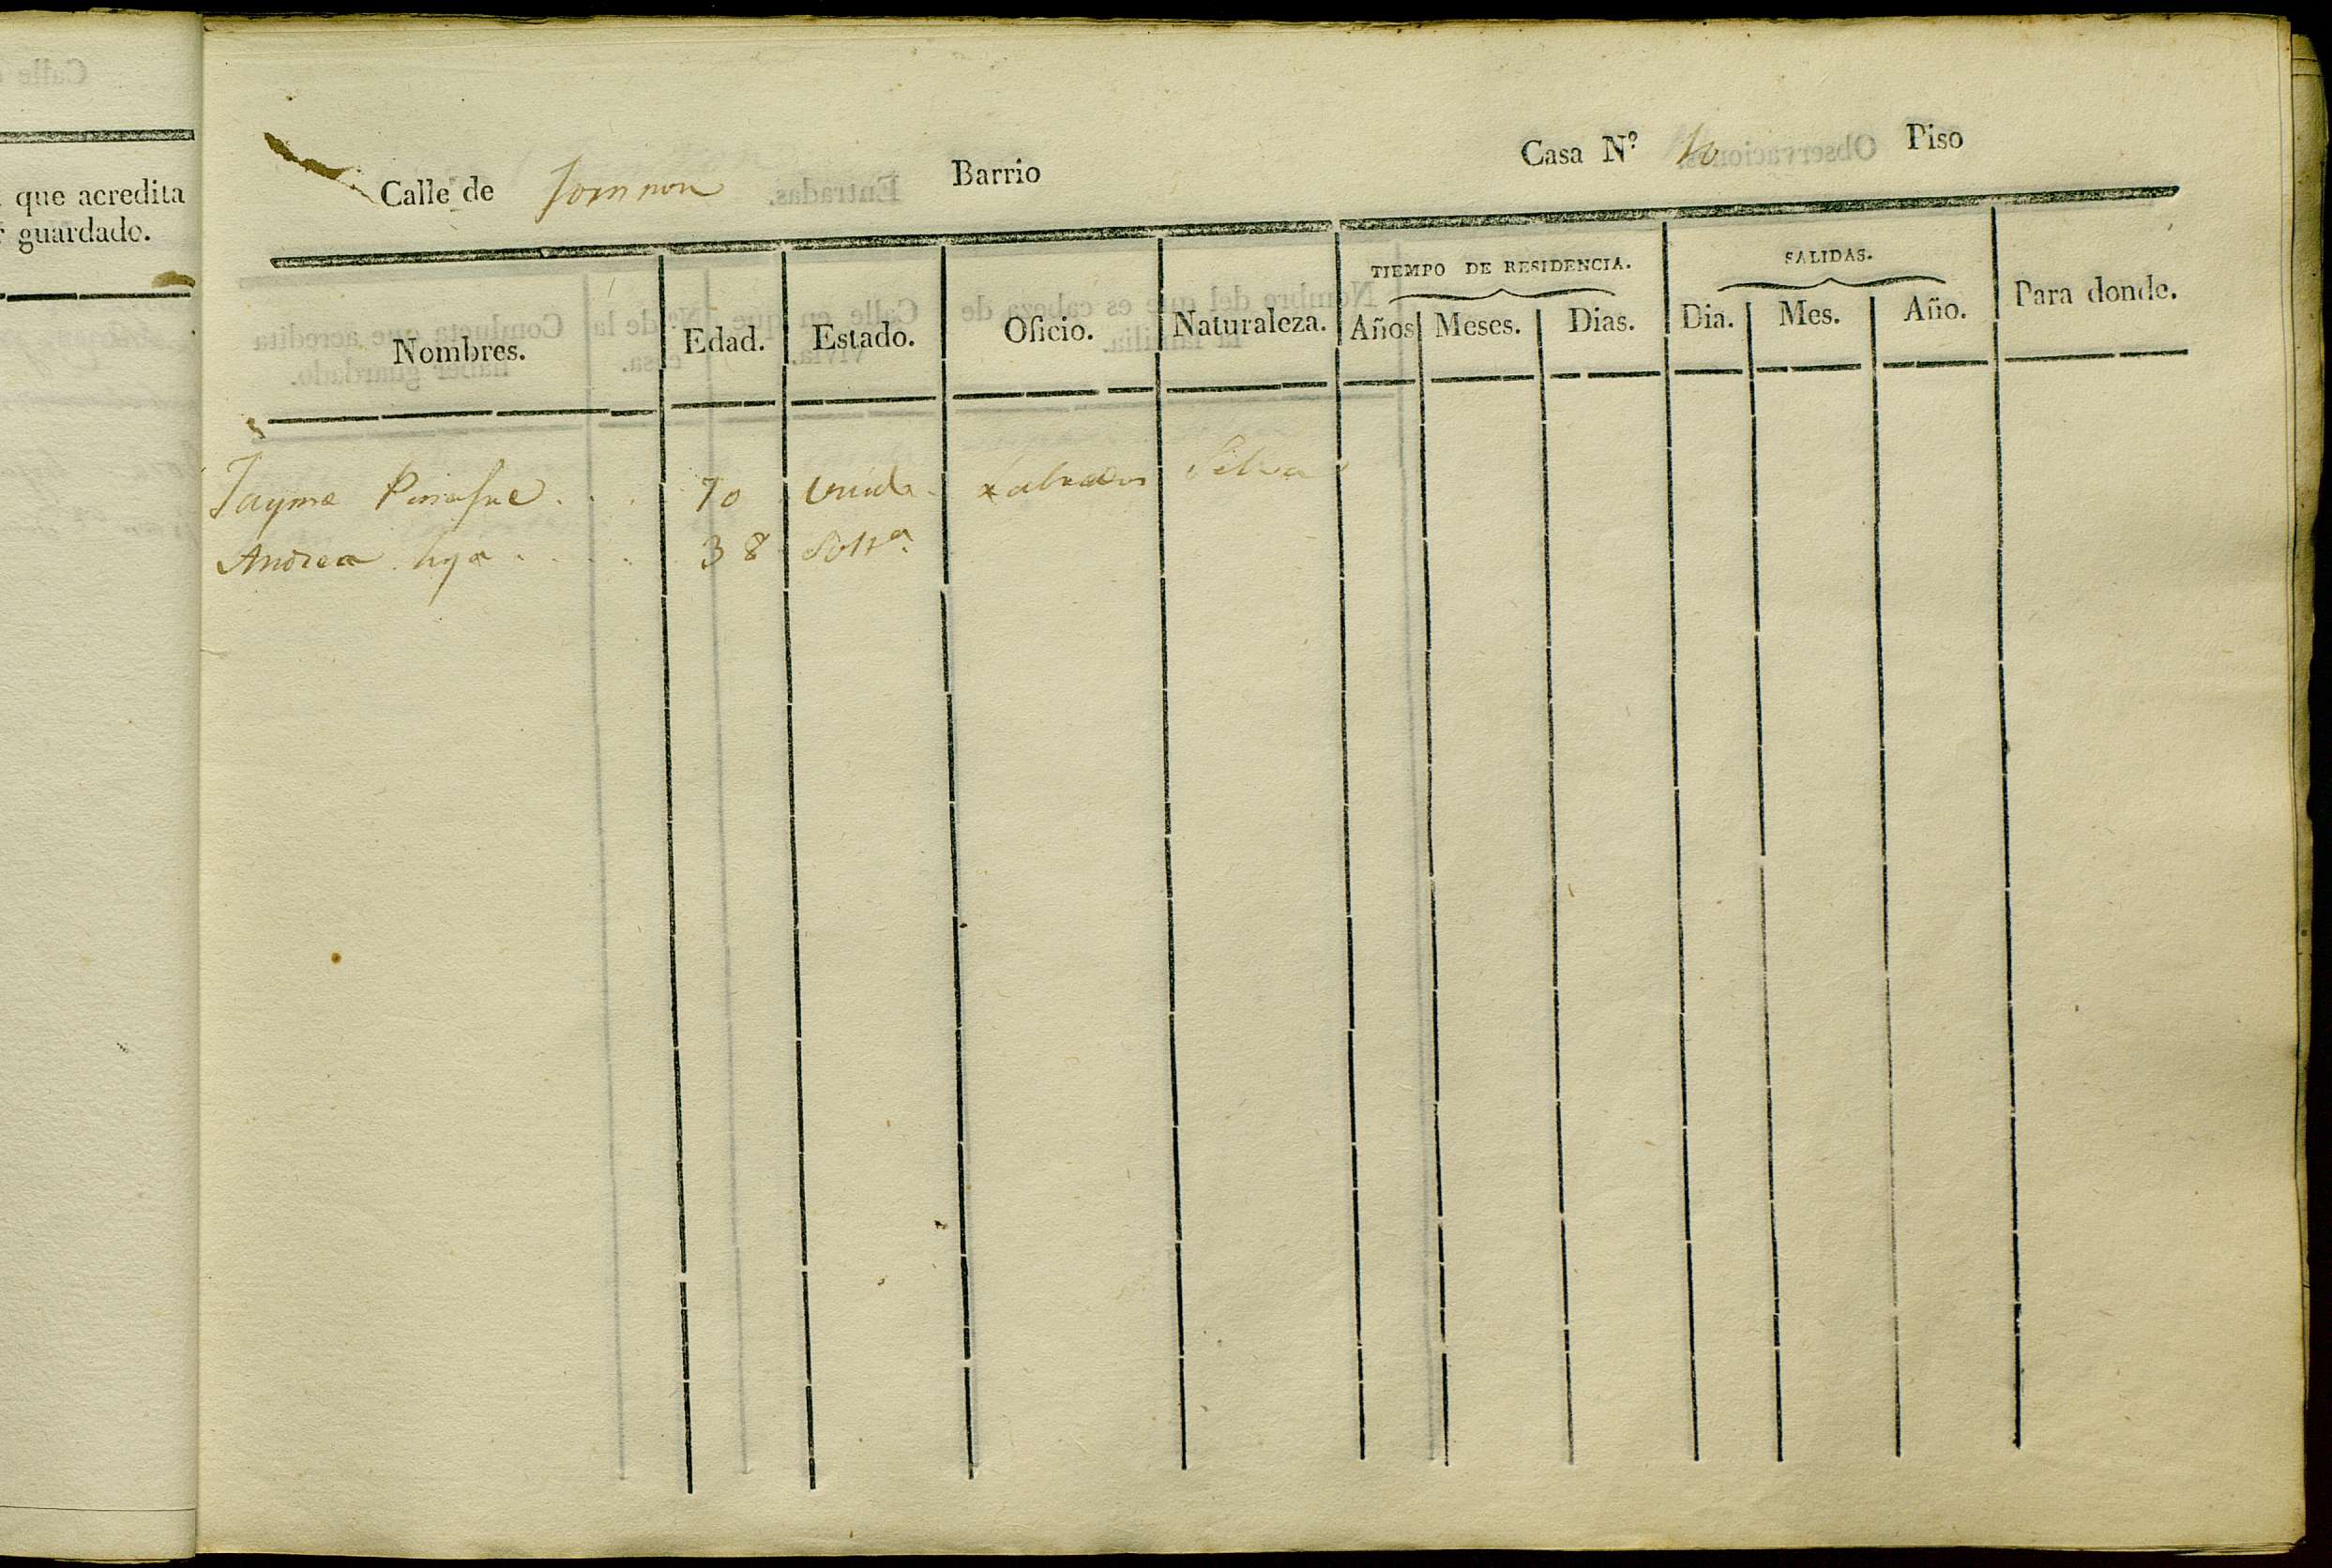 que acredita
guardado.
Calle de Barrio Casa N.º 10 Piso
Nombres. Edad. Estado. Oficio. Naturaleza. TIEMPO DE RESIDENCIA. SALIDAS. Para donde.
Años Meses. Dias. Dia. Mes. Año.
Jayme 70 Viudo Labrador Selva
Andrea hija 38 Soltª